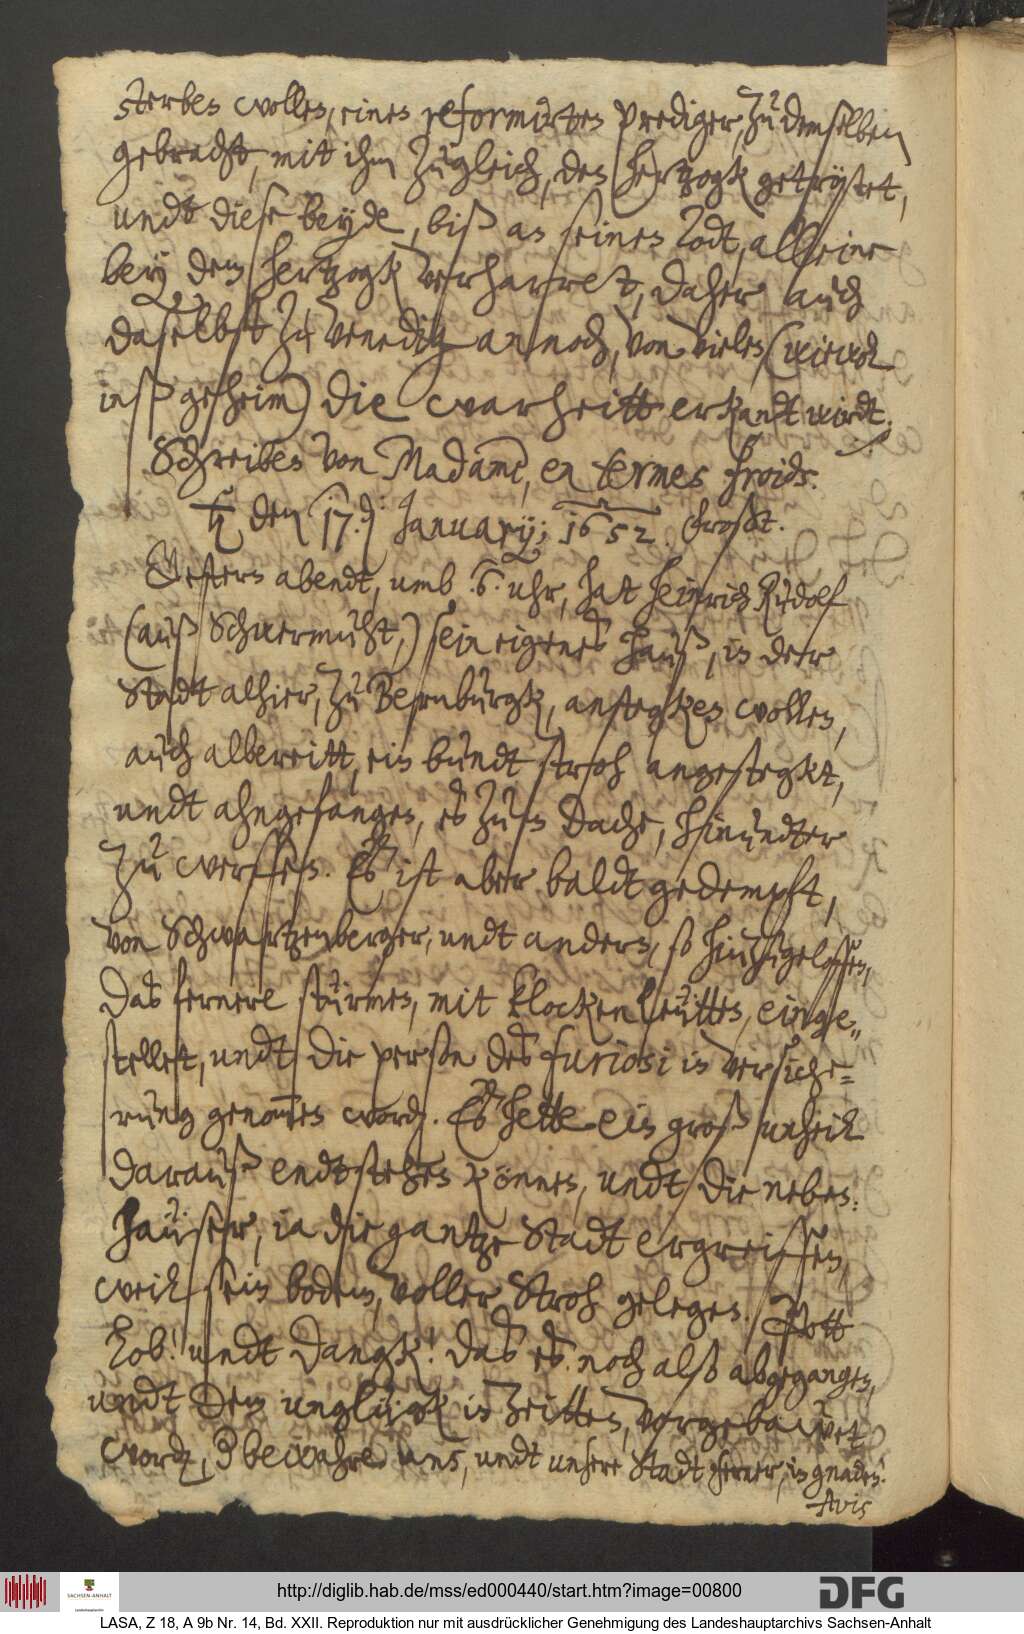 sterben wollen, einen reformirten Prediger, zu demselben
gebracht, mit ihm zugleich, den Hertzogk getröstet,
undt diese beyde, biß an seinen Todt, alleine
bey dem Hertzogk verharret, daher auch
daselbst zu Venedig annoch, von vielen (wiewol
inß geheim) die warheitt erkandt wirdt.
Schreiben von Madame, en termes froids.
den 17.d Januarij; 1652. Frost.
Gestern abendt, umb .6. uhr, hat Heinrich Rudolf
(auß Schwermuht,) sein eigenes hauß, in der
Stadt alhier, zu Bernburgk, anstegken wollen,
auch albereitt, ein bundt stroh angestegkt,
undt ahngefangen, es zum Dache, hinundter
zu werffen. Es ist aber baldt gedempft,
von Schwartzenberger, undt andern, so hinzugeloffen,
das fernere stürmen, mit klocken leütten, einge¬
stellet, undt die person des furiosi in versiche¬
rung genommen word. Es hette ein groß unheil
darauß endtstehen können, undt die neben¬
häuser, ia die gantze Stadt ergreiffen,
weil sein bodem, voller Stroh gelegen. Gott
Lob! undt dangk! das es noch alß abgegangen,
undt dem unglügk in zeitten, vorgebawet
word, Er bewahre uns, undt unsere Stadt ferner, in gnaden!
Avis
http://diglib.hab.de/mss/ed000440/start.htm?image=00800
SACHSEN-ANHALT
Landeshauptarchiv
DFG
LASA, Z 18, A 9b Nr. 14, Bd. XXII. Reproduktion nur mit ausdrücklicher Genehmigung des Landeshauptarchivs Sachsen-Anhalt